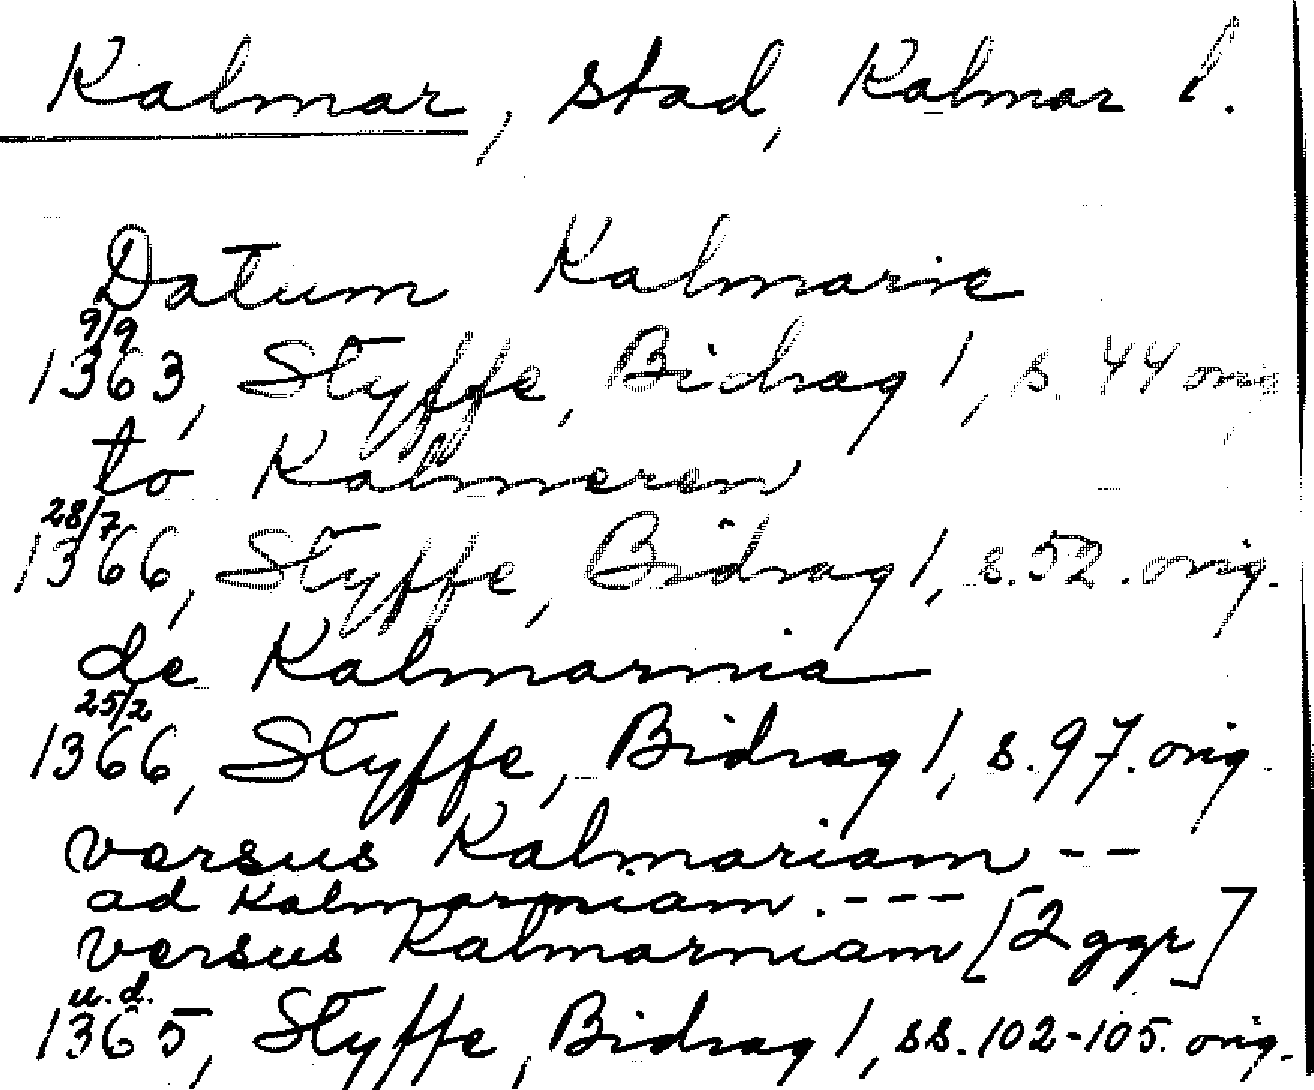 Kalmar, stad, Kalmar l.
Datum Kalmarie
9/9
1363, Styffe, Bidrag 1, s. 44 orig.
to Kalmeren
28/7
1366, Styffe, Bidrag 1, s. 52. orig.
de Kalmarnia
25/2
1366, Styffe, Bidrag 1, s. 97. orig.
versus Kalmariam --
ad Kalmarniam. ---
versus Kalmarniam [2 ggr]
u.d.
1365, Styffe, Bidrag 1, ss. 102-105. orig.